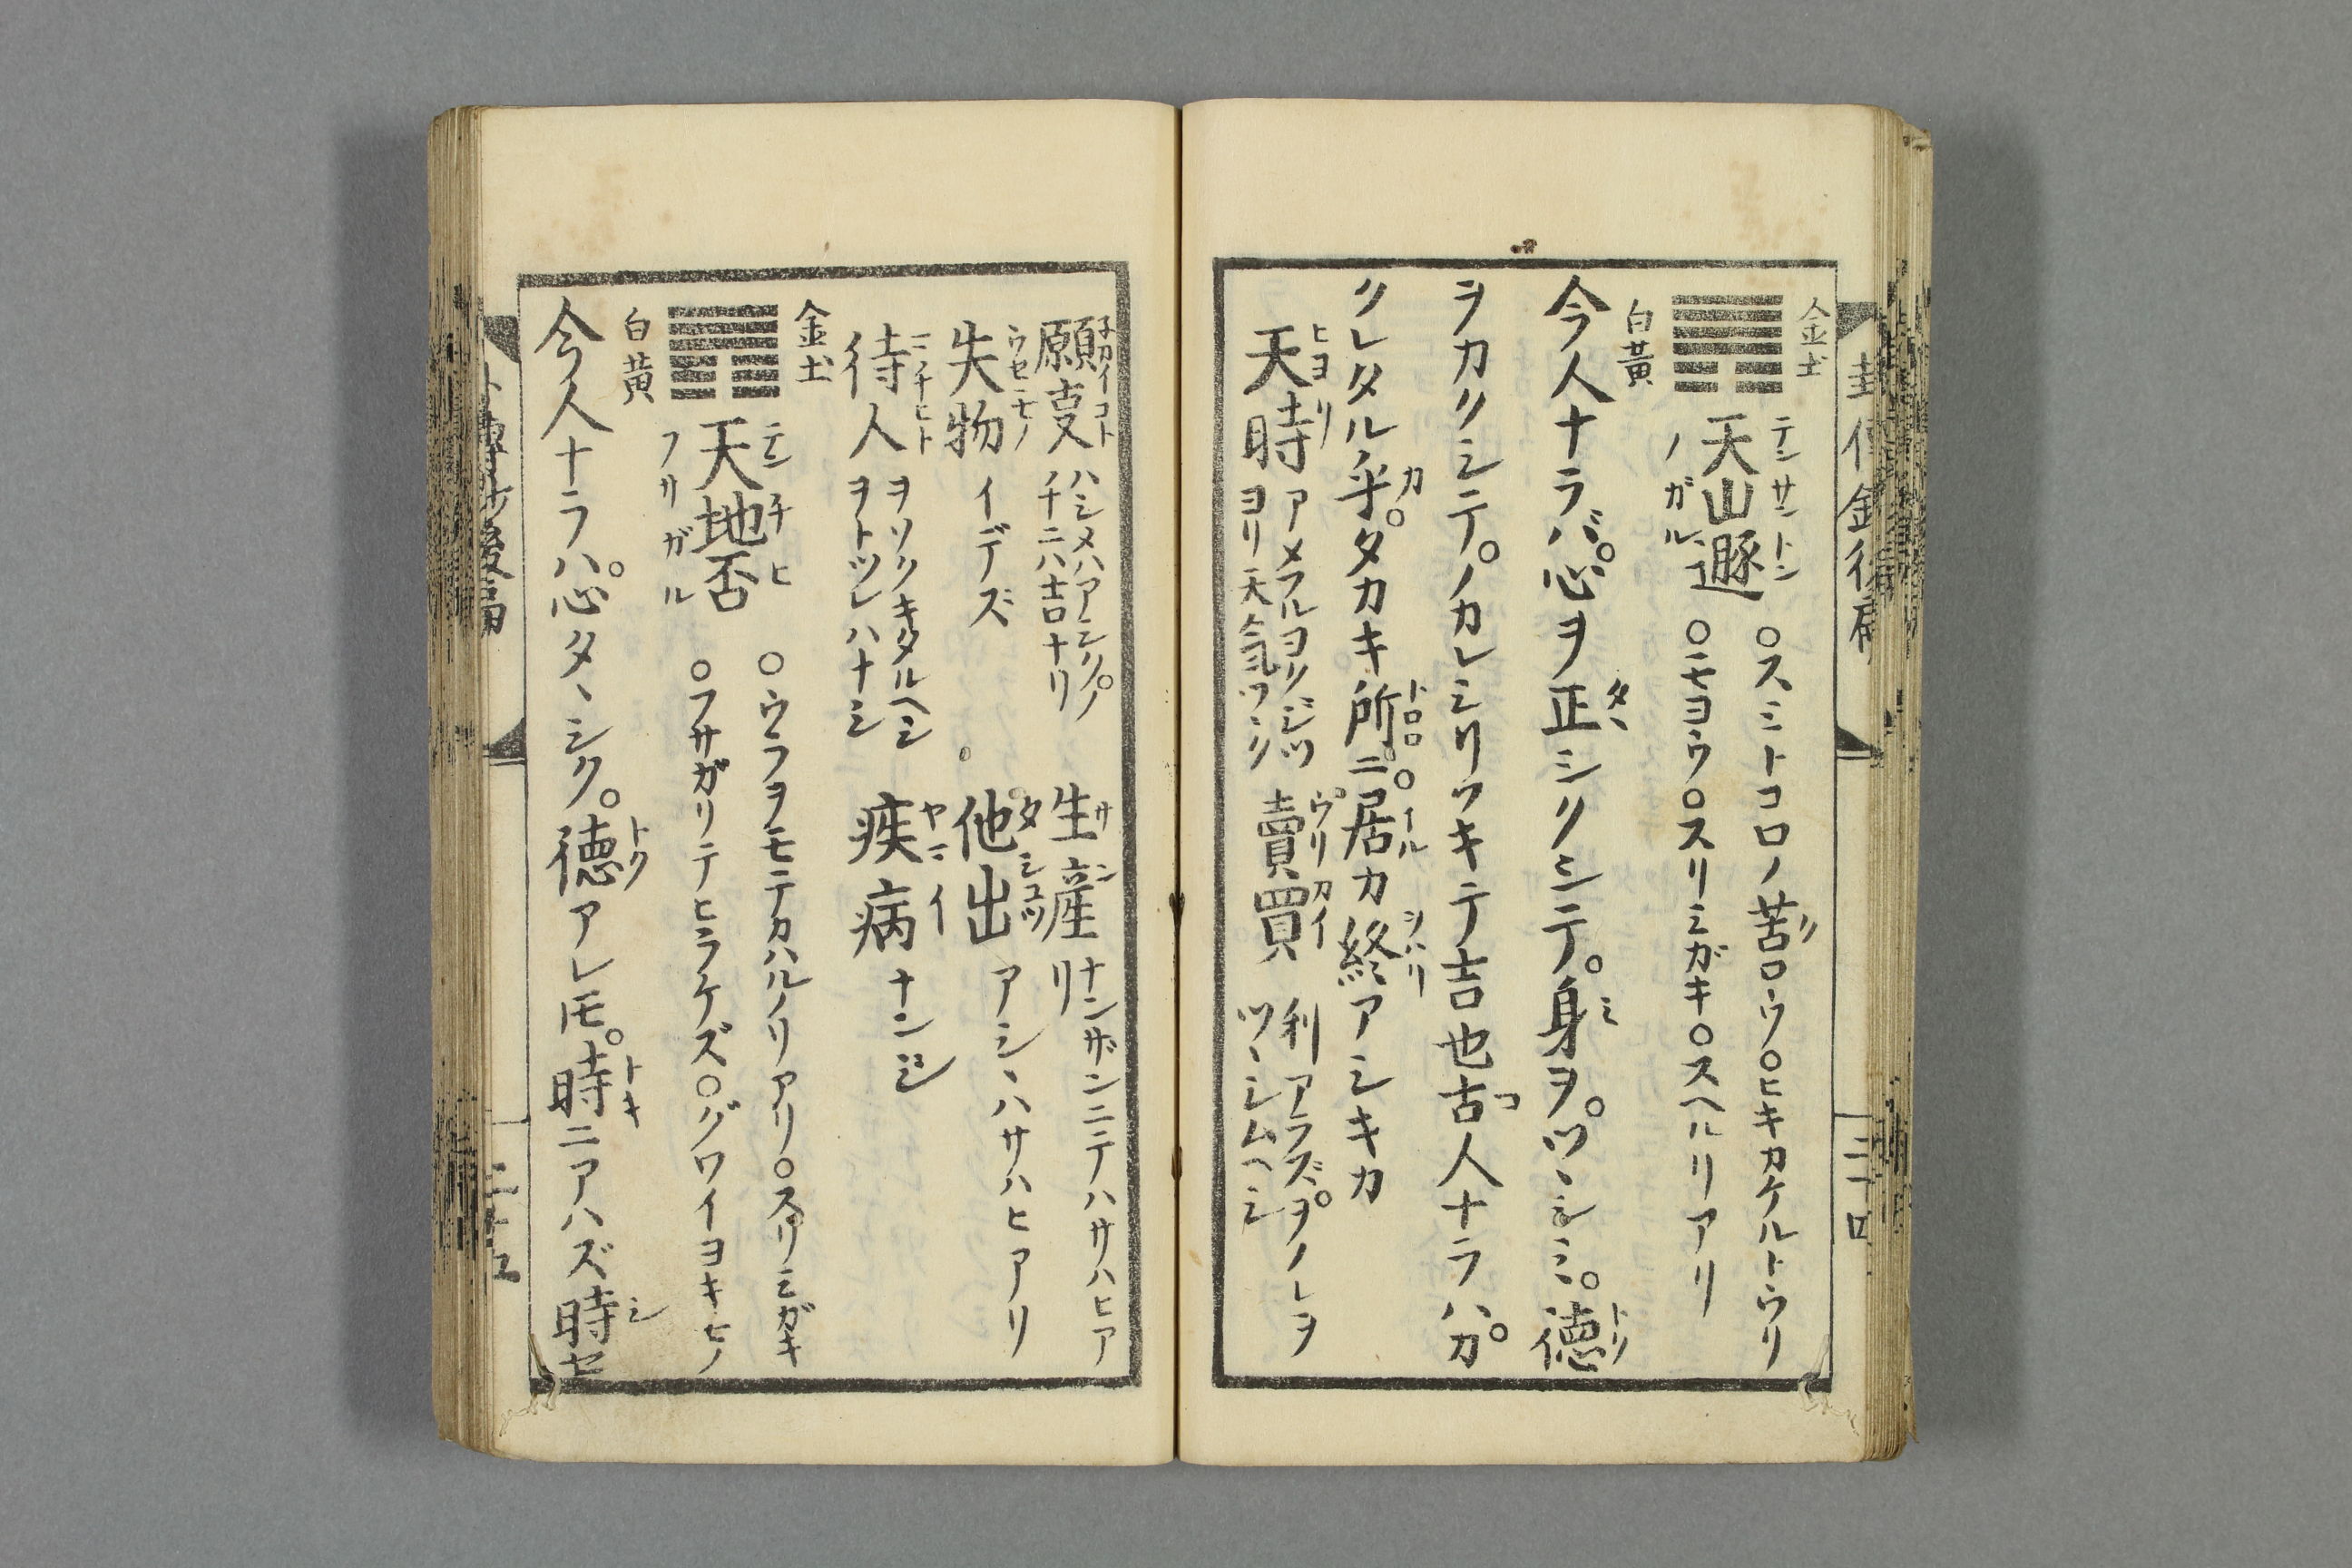 金土
白黄
天山遯
テンサントン
ノガル
○スミトコロノ苦ロウ○ヒキカケルトウリ
○モヨウ○スリミガキ○スヘルリアリ
今人ナラバ。心ヲ正シクシテ。身ヲ。ツヽシミ。徳
ヲカクシテ。ノカレシリゾキテ吉也古人ナラハ。カ
クレタル乎。タカキ所ニ。居カ終アシキカ
天時
ヒヨリ
アメフルヨクジツ
ヨリ天気ツヽク
賣買
ウリカイ
利アラズ。ヲノレヲ
ツヽシムヘシ
願叓
子カイコト
ハシメハアシク。ノ
チニハ吉ナリ
生産
サン
ナンザンニテハサハヒア
リ
失物
ウセモノ
イデズ
他出
タシユツ
アシヽハサハヒアリ
待人
ヲソクキタルヘシ
ヲトツレハナシ
疾病
ヤマイ
ナンジ
金土
白黄
天地否
テンチヒ
フサガル
○ウラヲモテカハルノリアリ○スリミガキ
○フサガリテヒラケズ○グワイヨキヒノ
今人ナラハ。心タヽシク。徳アレ𪜈。時ニアハズ時セ